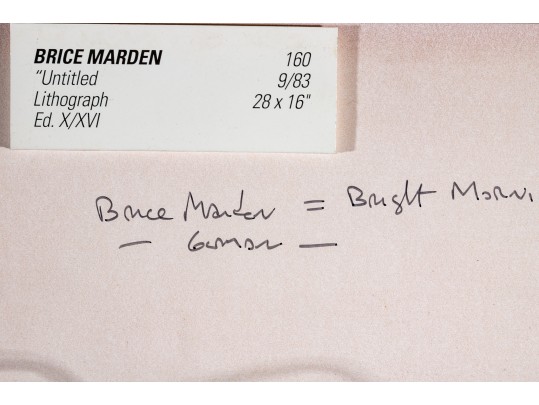 BRICE MARDEN 160
"Untitled 9/83
Lithograph 28 x 16"
Ed. X/XVI
Brice Marden = Bright Morni
— German —